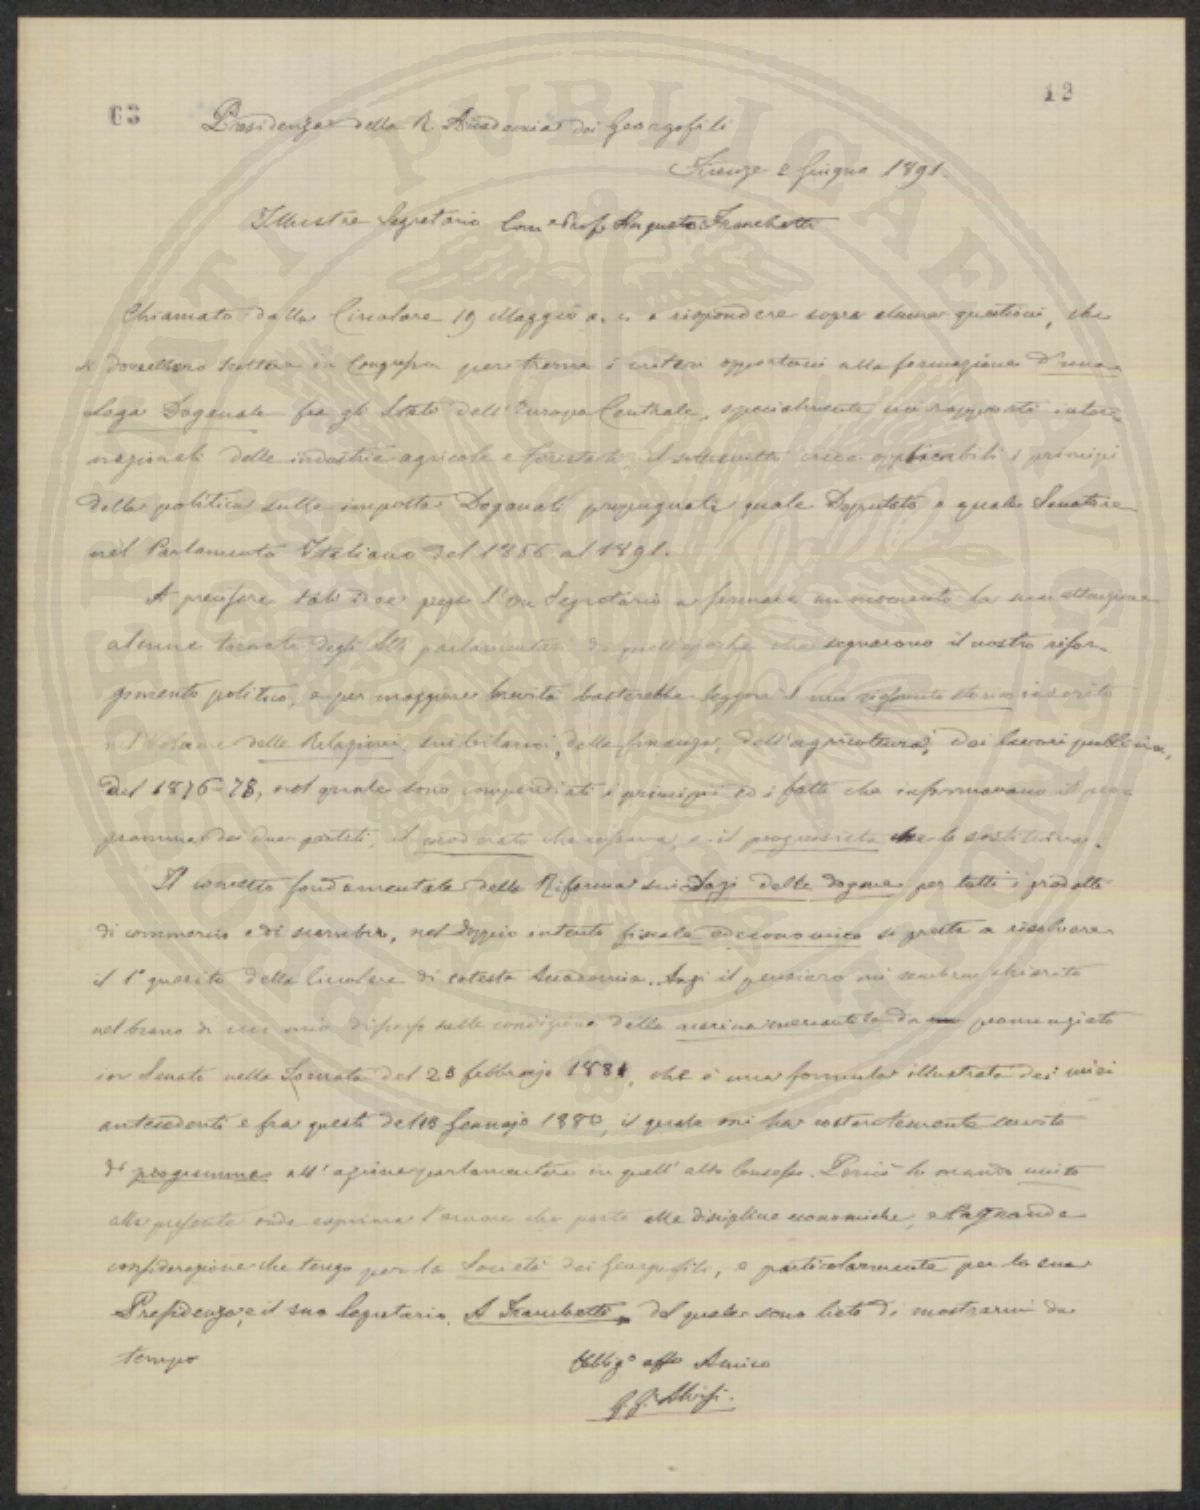 63
12
Presidenza della R. Accademia dei Georgofili
Firenze 2 Giugno 1891.
Illustre Segretario Com e Prof Augusto Franchetti
Chiamato dalla Circolare 19 Maggio a. c. a rispondere sopra alcune questioni, che
si dovrebbero trattare in Congresso per trarne i criteri opportuni alla formazione d'una
Lega Doganale fra gli Stati dell'Europa Centrale, specialmente nei rapporti inter-
nazionali delle industrie agricole e forestali, il sottoscritto crede applicabili i principi
della politica sulle imposte Doganali propugnati quale Deputato e quale Senatore
nel Parlamento Italiano del 1866 al 1891.
A precisare tali idee prega l'On Segretario a fermare un momento la sua attenzione
alcune tornate degli Atti parlamentari di quell'epoche che segnarono il nostro risor-
gimento politico, e per maggiore brevità basterebbe leggere il mio riassunto storico inserito
nel Volume delle Relazioni, sui bilanci, delle finanze, dell'agricoltura, dei lavori pubblici,
del 1876-78, nel quale sono compendiati i principi ed i fatti che informavano il pro-
gramma dei due partiti, il moderato che cessava, e il progressista che lo sostituiva.
Il concetto fondamentale della Riforma sui Dazi delle dogane per tutti i prodotti
di commercio e di scambio, nel doppio intento fiscale ed economico si presta a risolvere
il 1° quesito della Circolare di cotesta Accademia. Anzi il pensiero mi sembra chiarito
nel brano di un mio discorso sulle condizioni della marina mercantile da me pronunziato
in Senato nella Tornata del 23 febbrajo 1881, che è una formula illustrata dei miei
antecedenti e fra questi del 18 Gennajo 1880, il quale mi ha costantemente servito
di programma all'azione parlamentare in quell'alto Consesso. Perciò lo mando unito
alla presente onde esprimere l'amore che porto alle discipline economiche, e la grande
considerazione che tengo per la Società dei Georgofili, e particolarmente per la sua
Presidenza, e il suo Segretario A Franchetti, del quale sono lieto di mostrarmi da
tempo
Obblig° affo Amico
G. G. Alvisi.